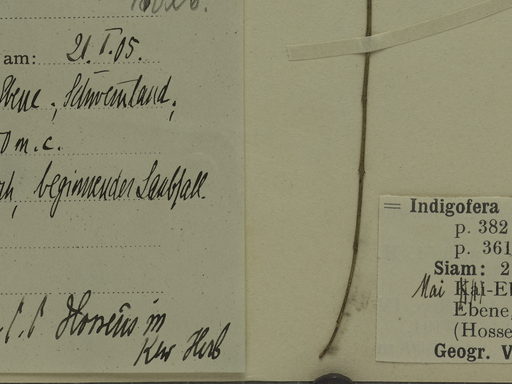 am: 21.I.05.
Ebene; Schwemmland;
0 m.c.
beginnender Laubfall.
C. C. Hosseus in
Kew Herb
= Indigofera
p. 382
p. 361
Siam: 2
Mai Kai-El
Ebene,
(Hosse
Geogr. V